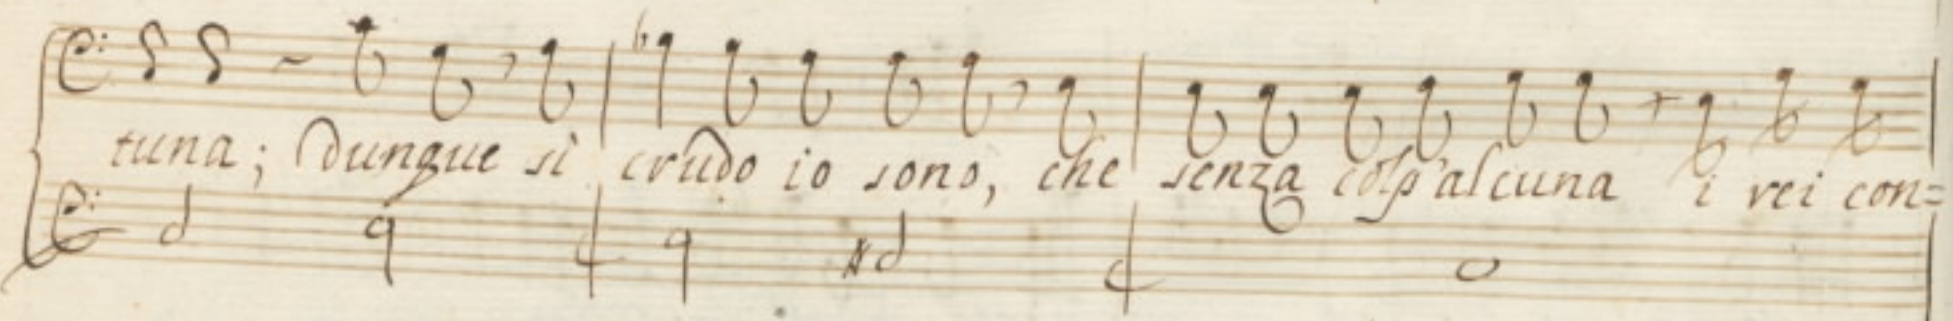 tuna; Dunque si crudo io sono, che senza colp'alcuna i rei con=